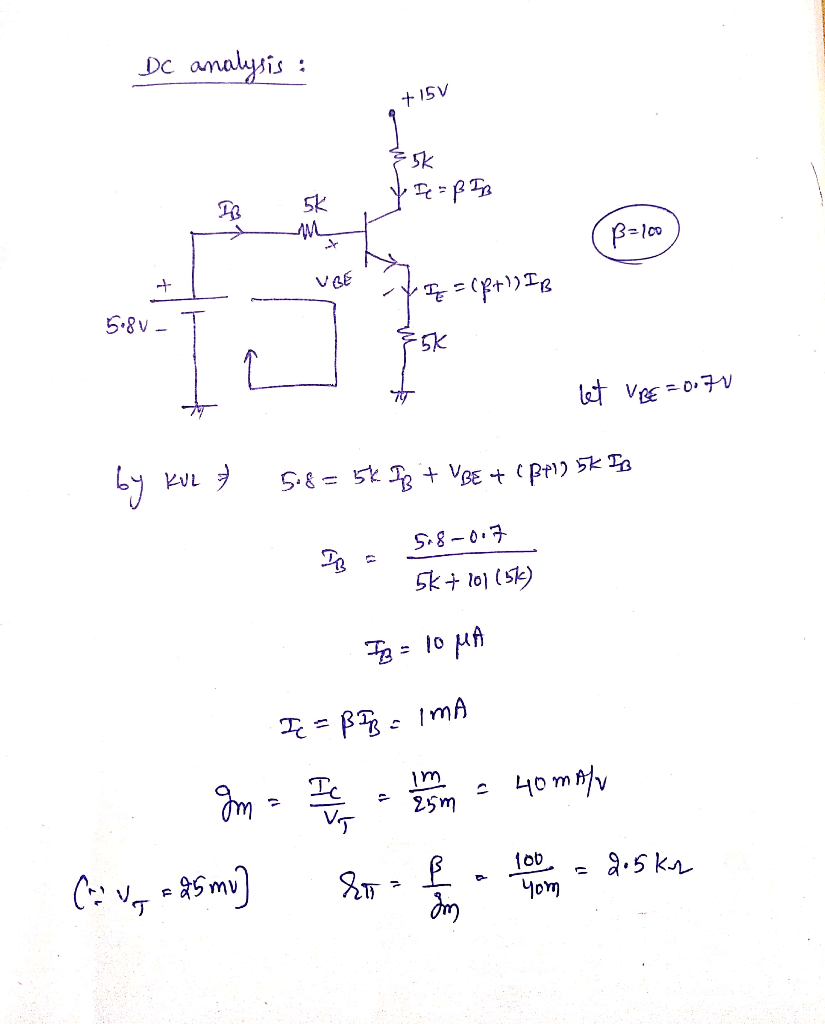 DC analysis :
+15V
5k
I_C = β I_B
I_B
5k
β=100
+
+
V_BE
-
I_E = (β+1) I_B
5.8V -
5k
let V_BE = 0.7V
by KVL ⇒ 5.8 = 5k I_B + V_BE + (β+1) 5k I_B
I_B = \frac{5.8-0.7}{5k + 101(5k)}
I_B = 10 μA
I_C = β I_B = 1mA
g_m = \frac{I_C}{V_T} = \frac{1m}{25m} = 40 mA/V
(∵ V_T = 25mv] r_π = \frac{β}{g_m} = \frac{100}{40m} = 2.5 kΩ